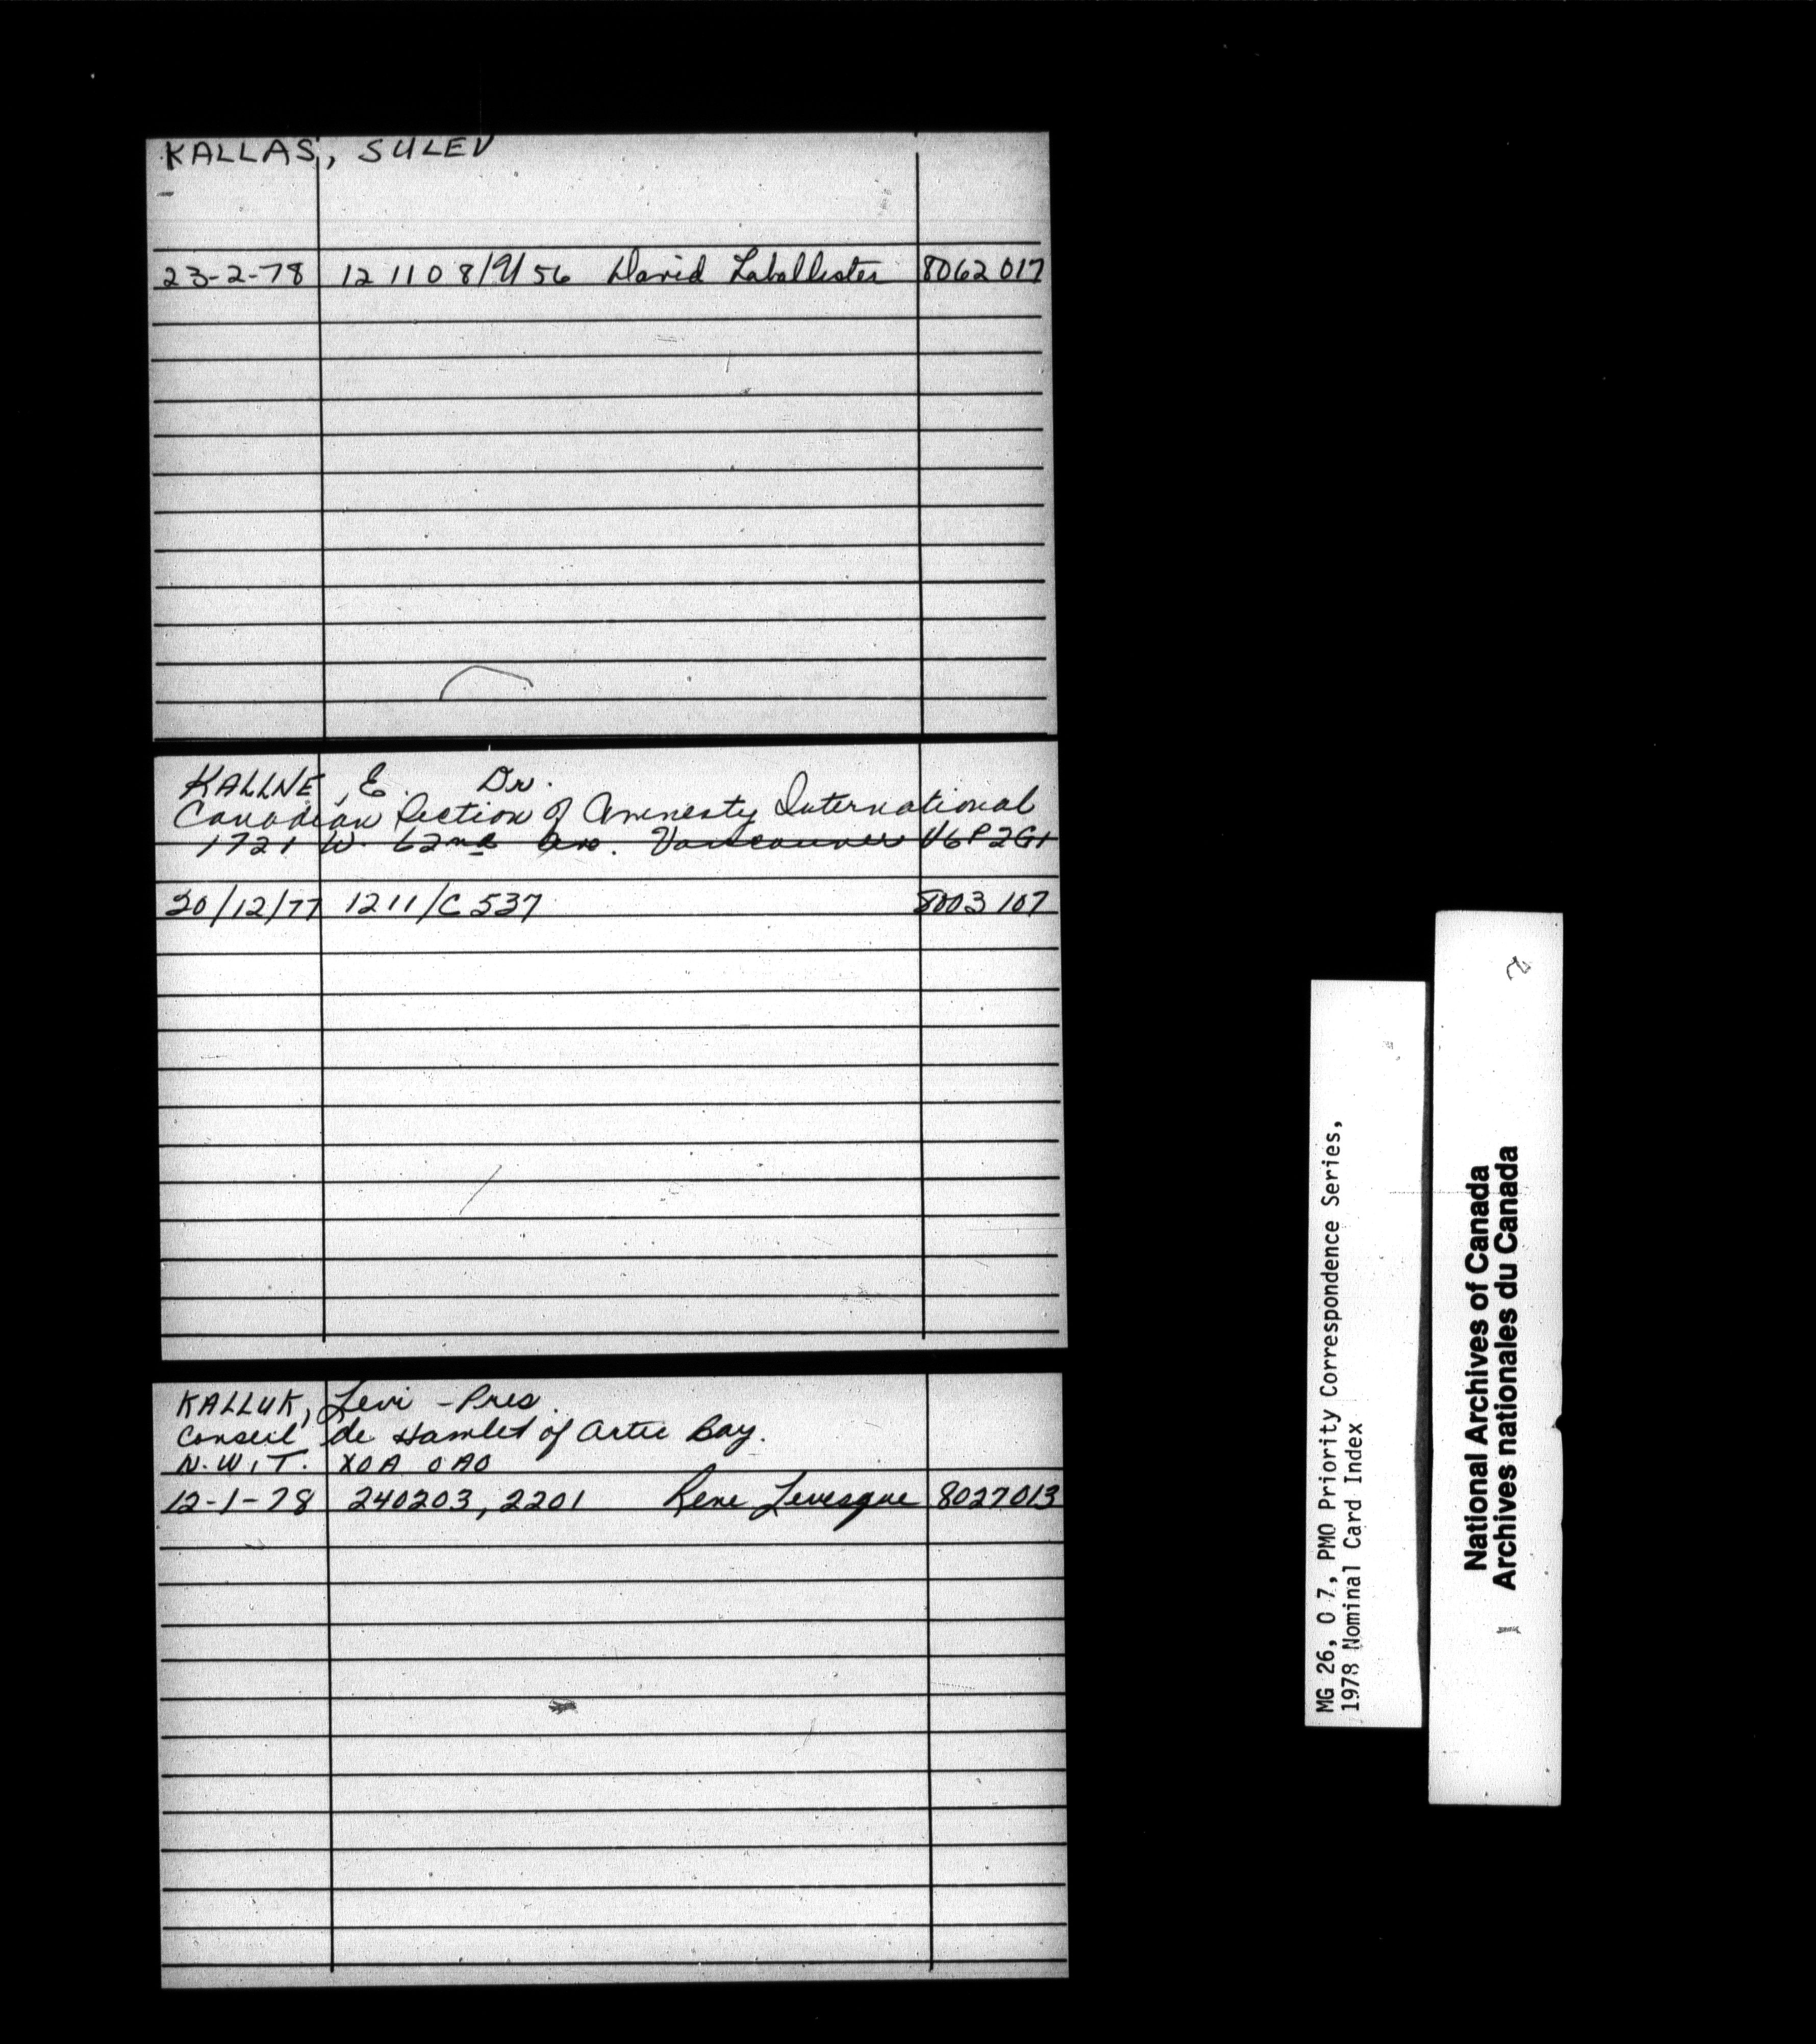 KALLAS, SULEV
23-2-78 12 11 0 8/9/56 David 8062 017
KALLNE, E. Dr.
Canadian Section of Amnesty International
1721 W. 62nd Ave. Vancouver V6P2G1
20/12/77 1211/C 537 8003 107
KALLUK, Levi - Pres.
Conseil de Hamlet of Artic Bay.
N.W.T. X0A 0A0
12-1-78 240203, 2201 Rene Levesque 8027013
MG 26, O 7, PMO Priority Correspondence Series,
1978 Nominal Card Index
National Archives of Canada
Archives nationales du Canada